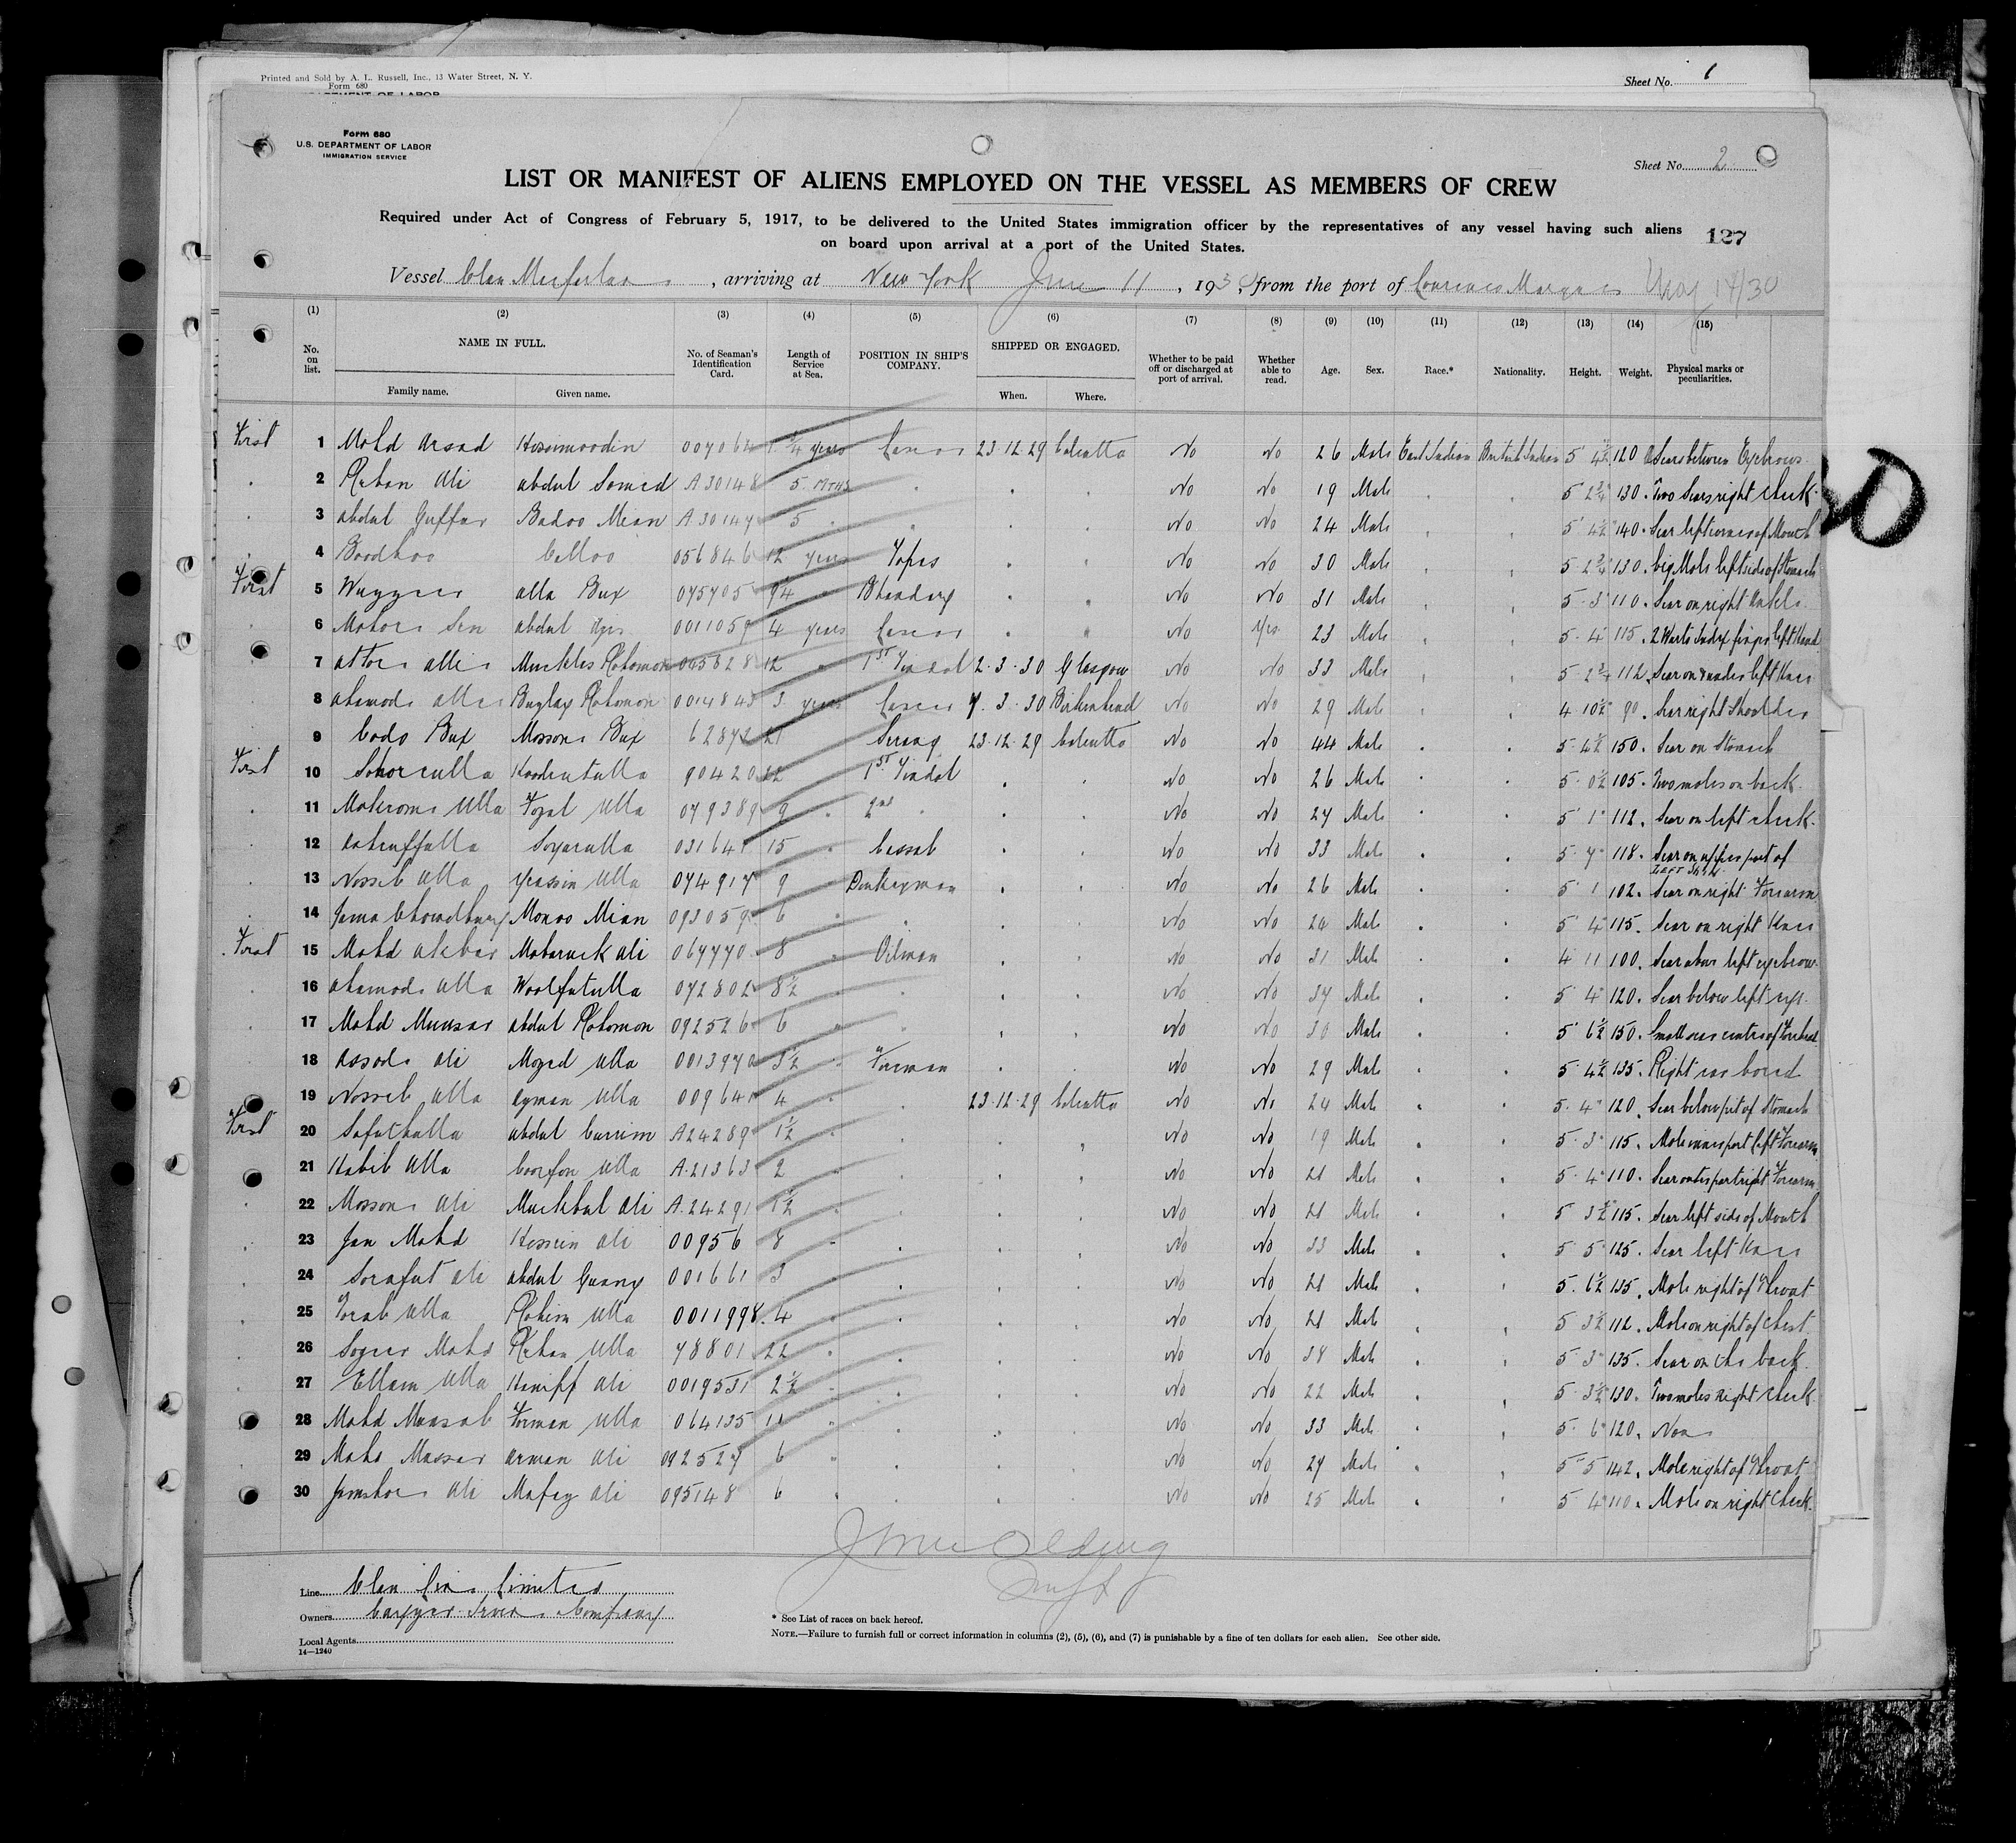 Printed and Sold by A. L. Russell, Inc., 13 Water Street, N. Y.
Form 680
Sheet No. 1
Form 680
U.S. DEPARTMENT OF LABOR
IMMIGRATION SERVICE
Sheet No. 2
LIST OR MANIFEST OF ALIENS EMPLOYED ON THE VESSEL AS MEMBERS OF CREW
Required under Act of Congress of February 5, 1917, to be delivered to the United States immigration officer by the representatives of any vessel having such aliens
on board upon arrival at a port of the United States.
127
Vessel Clan Macfarlane, arriving at New York June 11, 1930, from the port of Lourenco Marques May 14/30
(1) (2) (3) (4) (5) (6) (7) (8) (9) (10) (11) (12) (13) (14) (15)
No. on list. NAME IN FULL. Family name. Given name. No. of Seaman's Identification Card. Length of Service at Sea. POSITION IN SHIP'S COMPANY. SHIPPED OR ENGAGED. When. Where. Whether to be paid off or discharged at port of arrival. Whether able to read. Age. Sex. Race.* Nationality. Height. Weight. Physical marks or peculiarities.
First 1 Mohd Arsad Hossimoodin 1 3/4 years Cascar 23.12.29 Calcutta No No 26 Male East Indian British Indian 5 4½ 120 Scar between Eyebrows
2 Rehan Ali Abdul Somed A 30148 5 MTHS No No 19 Male 5 2¾ 130 Two Scars right cheek
3 Abdul Guffar Badoo Mian A 30147 5 No No 24 Male 5 4½ 140 Scar left corner of Mouth
4 Boodhoo Calloo 056846 12 years Topas No No 30 Male 5 2¾ 130 big Mole left side of Stomach
First 5 Wuzzeer Alla Bux 075705 9¼ Bhandary No No 31 Male 5 3 110 Scar on right Ankle
6 Abdul 4 years Cascar No Yes 23 Male 5 4 115 2 Warts Index finger left Hand
7 Rohomon 12 1ST Tindal 2.3.30 Glasgow No No 33 Male 5 2¾ 112 Scar on left Knee
8 Ahamode Rohomon 0014843 3 years Cascar 7.3.30 Birkenhead No No 29 Male 4 10½ 90 Scar right Shoulder
9 Codo Bux Mossone Bux 62872 21 Serang 23.12.29 Calcutta No No 44 Male 5 4½ 150 Scar on Stomach
First 10 90420 12 1ST Tindal No No 26 Male 5 0½ 105 Two moles on back
11 Mokrome Ulla Fozal Ulla 079389 9 2nd No No 27 Male 5 1 112 Scar on left cheek
12 031641 15 Cassab No No 33 Male 5 7 118 Scar on upper part of LEFT SHIN
13 Nosseb Ulla Yeassin Ulla 074917 9 Donkeyman No No 26 Male 5 1 102 Scar on right Forearm
14 Jama Chowdhury Monoo Mian 093059 6 No No 24 Male 5 4 115 Scar on right Knee
First 15 Mohd Akbar Mobaruck Ali 067770 8 Oilman No No 31 Male 4 11 100 Scar above left eyebrow
16 Ahamode Ulla Woolfutulla 072802 8½ No No 37 Male 5 4 120 Scar below left eye
17 Mohd Munsar Abdul Rohomon 092526 6 No No 30 Male 5 6½ 150 Small scar centre of Forehead
18 Assode Ali Mozed Ulla 3½ Fireman No No 29 Male 5 4½ 135 Right ear bored
19 Nosseb Ulla Ayman Ulla 009641 4 23.12.29 Calcutta No No 24 Male 5 4 120 Scar below pit of Stomach
First 20 Safutulla Abdul Currim A24289 1½ No No 19 Male 5 3 115 Mole inner part left Forearm
21 Habib Ulla A.21363 2 No No 21 Male 5 4 110 Scar outer part right Forearm
22 Mossone Ali Muckbul Ali A.24291 1½ No No 21 Male 5 3½ 115 Scar left side of Mouth
23 Jan Mohd Hossein Ali 00956 8 No No 33 Male 5 5 125 Scar left Knee
24 Sorafut Ali Abdul Guany 001661 3 No No 21 Male 5 6½ 135 Mole right of Throat
25 Torab Ulla Rohim Ulla 0011998 4 No No 21 Male 5 3½ 112 Mole on right of Chest
26 Mohd Rehan Ulla 78801 22 No No 38 Male 5 3 135 Scar on the back
27 Ellam Ulla Haniff Ali 0019531 2½ No No 22 Male 5 3½ 130 Two moles Right cheek
28 Mohd Munsab Forman Ulla 064135 11 No No 33 Male 5 6 120 None
29 Mohd Mussar Arman Ali 092527 6 No No 27 Male 5 5 142 Mole right of Throat
30 Jamshore Ali Mafiz Ali 095148 6 No No 25 Male 5 4 110 Mole on right Cheek
Line Clan Line Limited
Owners Cayzer Irvine Company
Local Agents
14—1240
* See List of races on back hereof.
NOTE.—Failure to furnish full or correct information in columns (2), (5), (6), and (7) is punishable by a fine of ten dollars for each alien. See other side.